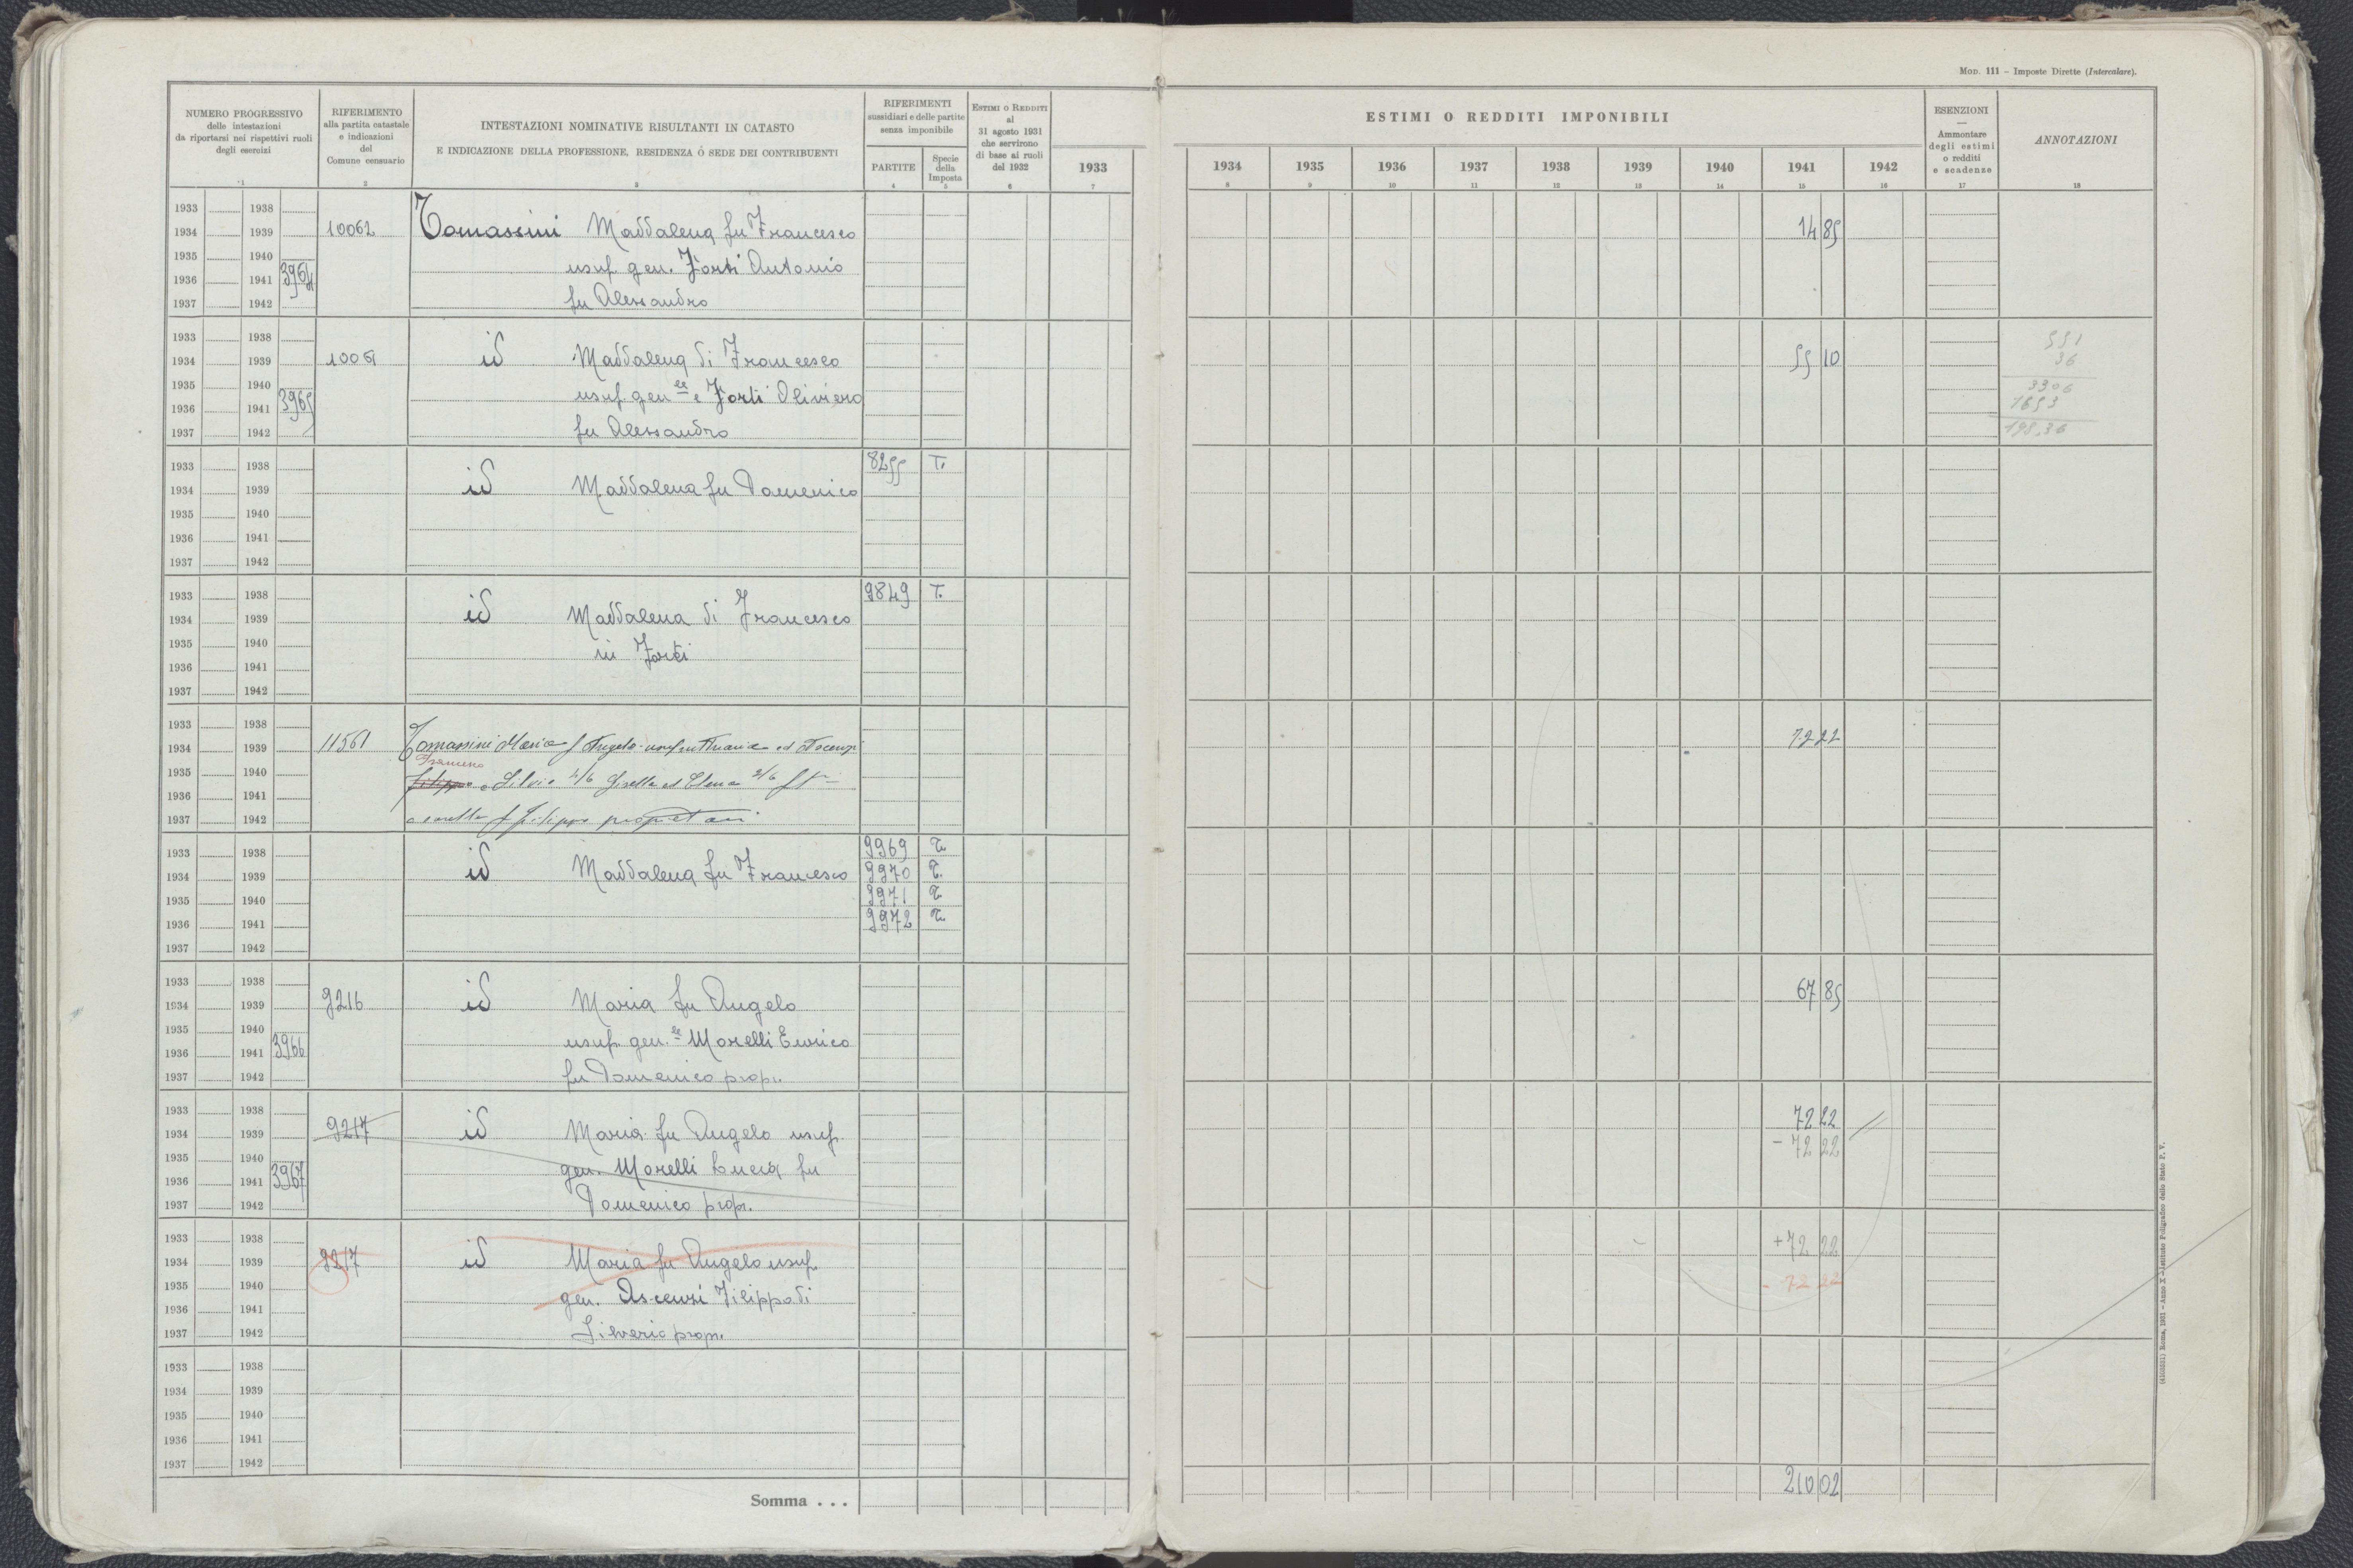 MOD. 111 – Imposte Dirette (Intercalare).
NUMERO PROGRESSIVO
delle intestazioni
da riportarsi nei rispettivi ruoli
degli esercizi
1
RIFERIMENTO
alla partita catastale
e indicazioni
del
Comune censuario
2
INTESTAZIONI NOMINATIVE RISULTANTI IN CATASTO
E INDICAZIONE DELLA PROFESSIONE, RESIDENZA O SEDE DEI CONTRIBUENTI
3
RIFERIMENTI
sussidiari e delle partite
senza imponibile
PARTITE
4
Specie
della
Imposta
5
ESTIMI O REDDITI
al
31 agosto 1931
che servirono
di base ai ruoli
del 1932
6
1933
7
ESTIMI O REDDITI IMPONIBILI
1934 1935 1936 1937 1938 1939 1940 1941 1942
8 9 10 11 12 13 14 15 16
ESENZIONI
—
Ammontare
degli estimi
o redditi
e scadenze
17
ANNOTAZIONI
18
1933 1938
1934 1939 10062 Tomassini Maddalena fu Francesco 14 85
1935 1940 usuf. gen. Forti Antonio
1936 1941 3964
1937 1942 fu Alessandro
1933 1938 551
1934 1939 id Maddalena di Francesco 55 10 36
1935 1940 usuf. gen le e Forti Oliviero 3306
1936 1941 3965 1653
1937 1942 fu Alessandro 198,36
1933 1938 8255 T.
1934 1939 id Maddalena fu Domenico
1935 1940
1936 1941
1937 1942
1933 1938 9849 T.
1934 1939 id Maddalena di Francesco
1935 1940 in Forti
1936 1941
1937 1942
1933 1938
1934 1939 11561 Tomassini Maria f Angelo usufruttuaria ed Ascenzi 72 22
Francesco
1935 1940 Filippo e Silvio 4/6 Gisella ed Elena 2/6
1936 1941
1937 1942 e sorelle f Filippo proprietari
1933 1938 9969 T.
1934 1939 id Maddalena fu Francesco 9970 T.
1935 1940 9971 T.
1936 1941 9972 T.
1937 1942
1933 1938
1934 1939 9216 id Maria fu Angelo 67 85
1935 1940
1936 1941 3966 usuf. gen. le Morelli Enrico
1937 1942 fu Domenico propr.
1933 1938 72 22
1934 1939 9217 id Maria fu Angelo usuf. - 72 22
1935 1940 gen. Morelli Lucia fu
1936 1941 3967
1937 1942 Domenico propr.
1933 1938 + 72 22
1934 1939 9217 id Maria fu Angelo usuf.
1935 1940 - 72 22
1936 1941 gen. Ascenzi Filippo di
1937 1942 Silverio propr.
1933 1938
1934 1939
1935 1940
1936 1941
1937 1942
Somma . . . 210 02
(4103551) Roma, 1931 – Anno X – Istituto Poligrafico dello Stato P. V.